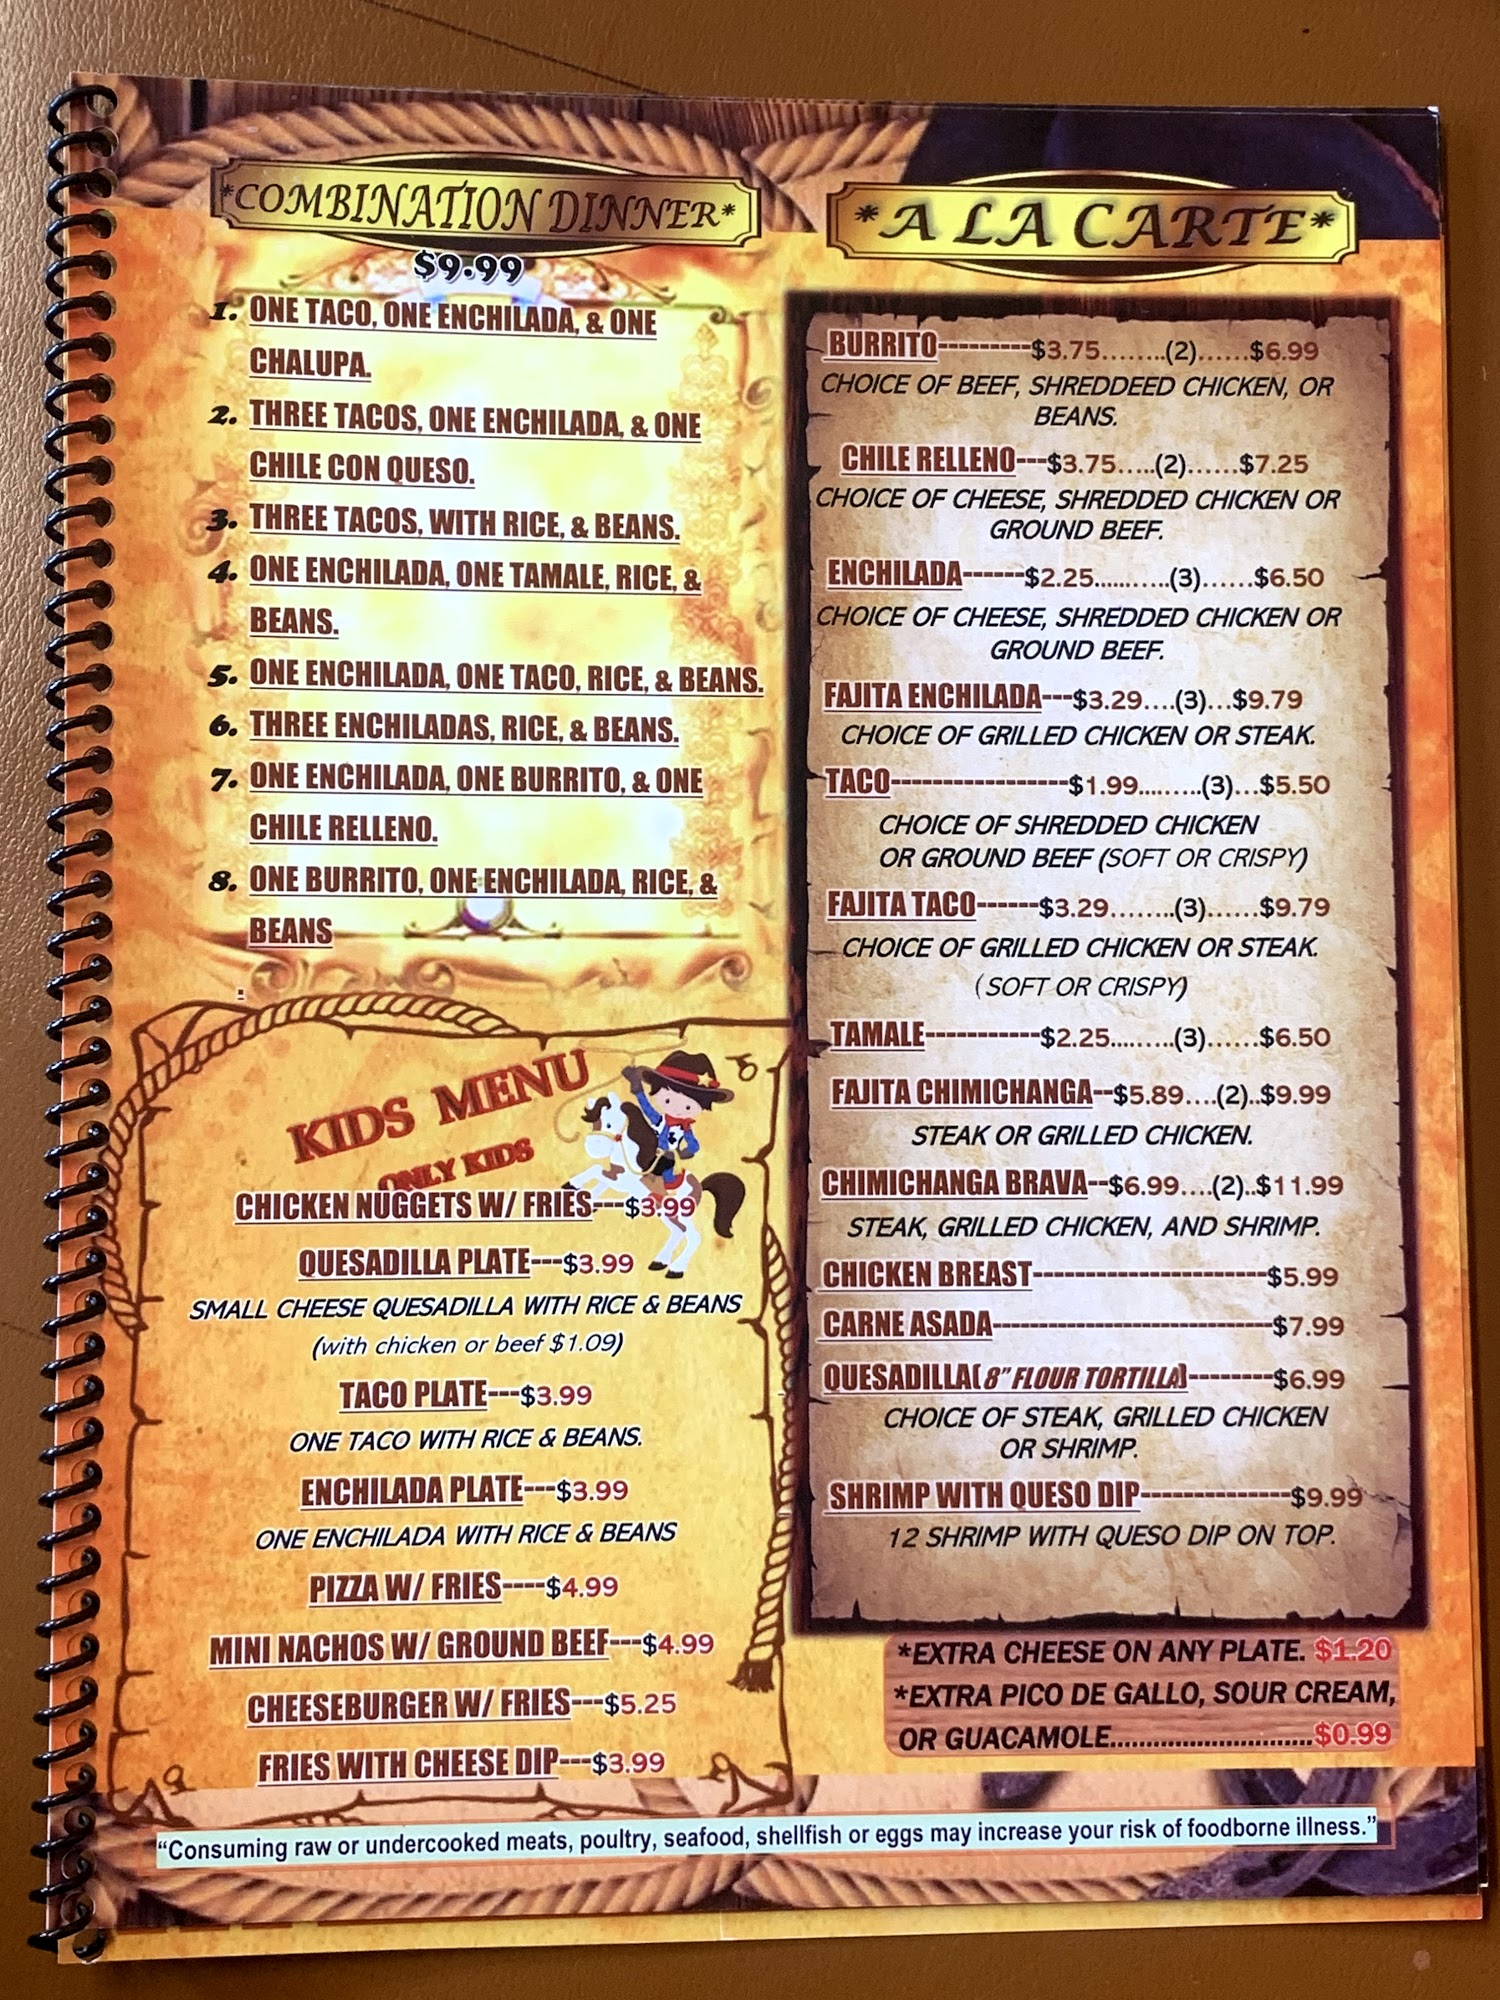 *COMBINATION DINNER*
$9.99
1. ONE TACO, ONE ENCHILADA, & ONE
CHALUPA.
2. THREE TACOS, ONE ENCHILADA, & ONE
CHILE CON QUESO.
3. THREE TACOS, WITH RICE, & BEANS.
4. ONE ENCHILADA, ONE TAMALE, RICE, &
BEANS.
5. ONE ENCHILADA, ONE TACO, RICE, & BEANS.
6. THREE ENCHILADAS, RICE, & BEANS.
7. ONE ENCHILADA, ONE BURRITO, & ONE
CHILE RELLENO.
8. ONE BURRITO, ONE ENCHILADA, RICE, &
BEANS
.
KIDS MENU
ONLY KIDS
CHICKEN NUGGETS W/ FRIES---$3.99
QUESADILLA PLATE---$3.99
SMALL CHEESE QUESADILLA WITH RICE & BEANS
(with chicken or beef $1.09)
TACO PLATE---$3.99
ONE TACO WITH RICE & BEANS.
ENCHILADA PLATE---$3.99
ONE ENCHILADA WITH RICE & BEANS
PIZZA W/ FRIES----$4.99
MINI NACHOS W/ GROUND BEEF---$4.99
CHEESEBURGER W/ FRIES---$5.25
FRIES WITH CHEESE DIP---$3.99
*A LA CARTE*
BURRITO---------$3.75........(2)......$6.99
CHOICE OF BEEF, SHREDDEED CHICKEN, OR
BEANS.
CHILE RELLENO---$3.75.....(2)......$7.25
CHOICE OF CHEESE, SHREDDED CHICKEN OR
GROUND BEEF.
ENCHILADA------$2.25..........(3)......$6.50
CHOICE OF CHEESE, SHREDDED CHICKEN OR
GROUND BEEF.
FAJITA ENCHILADA---$3.29....(3)...$9.79
CHOICE OF GRILLED CHICKEN OR STEAK.
TACO-----------------$1.99.........(3)...$5.50
CHOICE OF SHREDDED CHICKEN
OR GROUND BEEF (SOFT OR CRISPY)
FAJITA TACO------$3.29........(3)......$9.79
CHOICE OF GRILLED CHICKEN OR STEAK.
(SOFT OR CRISPY)
TAMALE-----------$2.25.........(3)......$6.50
FAJITA CHIMICHANGA--$5.89....(2)..$9.99
STEAK OR GRILLED CHICKEN.
CHIMICHANGA BRAVA--$6.99....(2)..$11.99
STEAK, GRILLED CHICKEN, AND SHRIMP.
CHICKEN BREAST----------------------$5.99
CARNE ASADA---------------------------$7.99
QUESADILLA(8" FLOUR TORTILLA)--------$6.99
CHOICE OF STEAK, GRILLED CHICKEN
OR SHRIMP.
SHRIMP WITH QUESO DIP--------------$9.99
12 SHRIMP WITH QUESO DIP ON TOP.
*EXTRA CHEESE ON ANY PLATE. $1.20
*EXTRA PICO DE GALLO, SOUR CREAM,
OR GUACAMOLE............................$0.99
“Consuming raw or undercooked meats, poultry, seafood, shellfish or eggs may increase your risk of foodborne illness.”